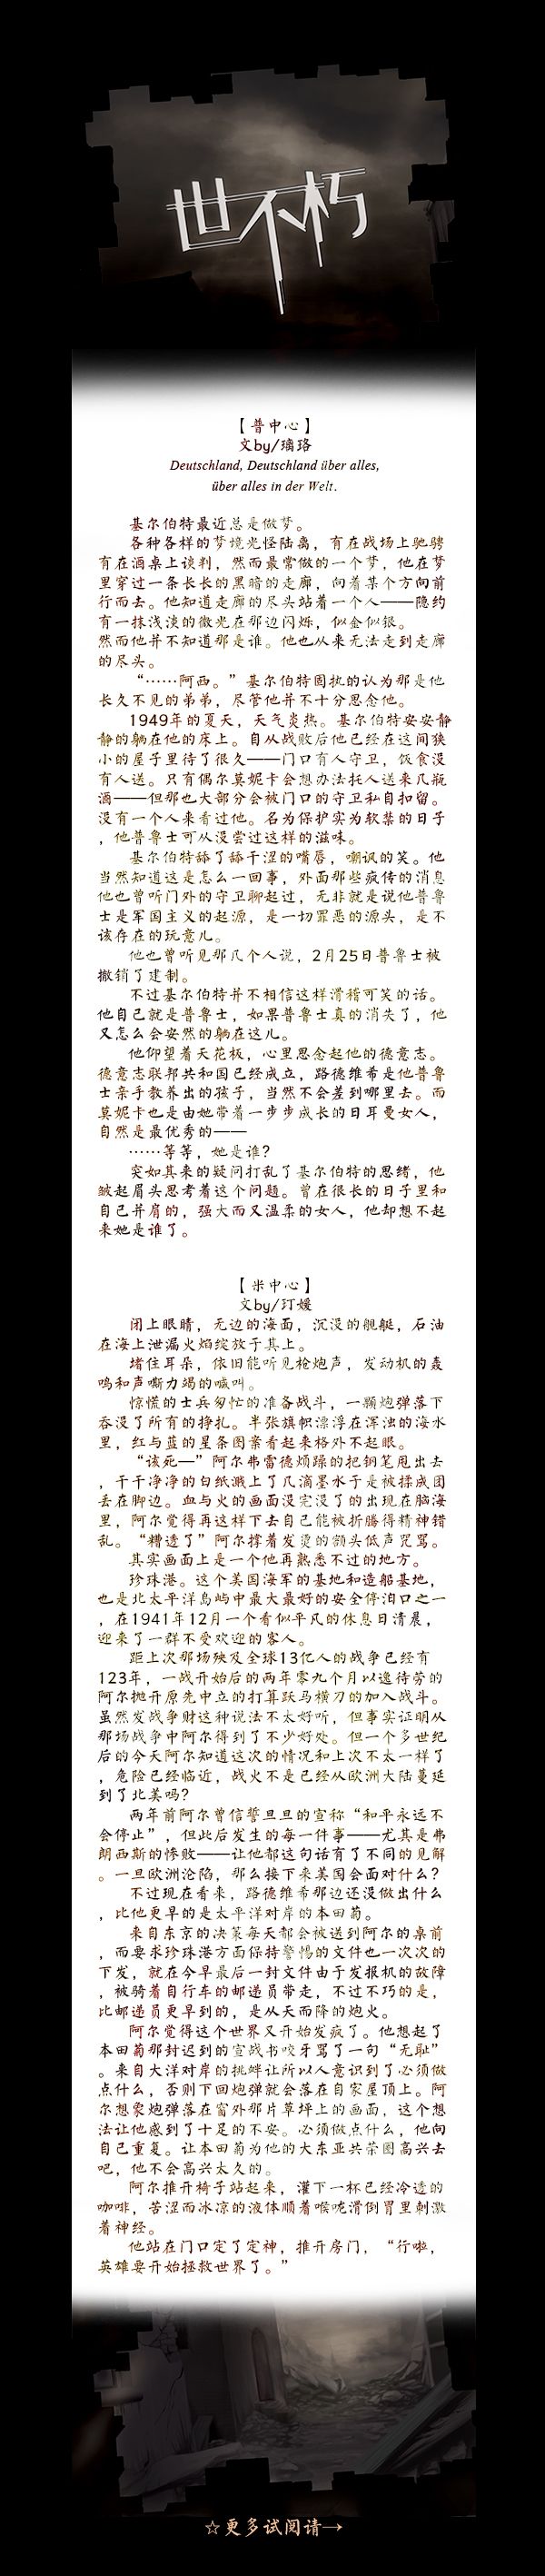 世不朽
【普中心】
文by/璃珞
Deutschland, Deutschland über alles,
über alles in der Welt.
基尔伯特最近总是做梦。
各种各样的梦境光怪陆离，有在战场上驰骋
有在酒桌上谈判，然而最常做的一个梦，他在梦
里穿过一条长长的黑暗的走廊，向着某个方向前
行而去。他知道走廊的尽头站着一个人——隐约
有一抹浅淡的微光在那边闪烁，似金似银。
然而他并不知道那是谁。他也从来无法走到走廊
的尽头。
“……阿西。”基尔伯特固执的认为那是他
长久不见的弟弟，尽管他并不十分思念他。
1949年的夏天，天气炎热。基尔伯特安安静
静的躺在他的床上。自从战败后他已经在这间狭
小的屋子里待了很久——门口有人守卫，饭食没
有人送。只有偶尔莫妮卡会想办法托人送来几瓶
酒——但那也大部分会被门口的守卫私自扣留。
没有一个人来看过他。名为保护实为软禁的日子
，他普鲁士可从没尝过这样的滋味。
基尔伯特舔了舔干涩的嘴唇，嘲讽的笑。他
当然知道这是怎么一回事，外面那些疯传的消息
他也曾听门外的守卫聊起过，无非就是说他普鲁
士是军国主义的起源，是一切罪恶的源头，是不
该存在的玩意儿。
他也曾听见那几个人说，2月25日普鲁士被
撤销了建制。
不过基尔伯特并不相信这样滑稽可笑的话。
他自己就是普鲁士，如果普鲁士真的消失了，他
又怎么会安然的躺在这儿。
他仰望着天花板，心里思念起他的德意志。
德意志联邦共和国已经成立，路德维希是他普鲁
士亲手教养出的孩子，当然不会差到哪里去。而
莫妮卡也是由她带着一步步成长的日耳曼女人，
自然是最优秀的——
……等等，她是谁？
突如其来的疑问打乱了基尔伯特的思绪，他
皱起眉头思考着这个问题。曾在很长的日子里和
自己并肩的，强大而又温柔的女人，他却想不起
来她是谁了。
【米中心】
文by/玎媛
闭上眼睛，无边的海面，沉没的舰艇，石油
在海上泄漏火焰绽放于其上。
堵住耳朵，依旧能听见枪炮声，发动机的轰
鸣和声嘶力竭的喊叫。
惊慌的士兵匆忙的准备战斗，一颗炮弹落下
吞没了所有的挣扎。半张旗帜漂浮在浑浊的海水
里，红与蓝的星条图案看起来格外不起眼。
“该死—”阿尔弗雷德烦躁的把钢笔甩出去
，干干净净的白纸溅上了几滴墨水于是被揉成团
丢在脚边。血与火的画面没完没了的出现在脑海
里，阿尔觉得再这样下去自己能被折腾得精神错
乱。“糟透了”阿尔撑着发烫的额头低声咒骂。
其实画面上是一个他再熟悉不过的地方。
珍珠港。这个美国海军的基地和造船基地，
也是北太平洋岛屿中最大最好的安全停泊口之一
，在1941年12月一个看似平凡的休息日清晨，
迎来了一群不受欢迎的客人。
距上次那场殃及全球13亿人的战争已经有
123年，一战开始后的两年零九个月以逸待劳的
阿尔抛开原先中立的打算跃马横刀的加入战斗。
虽然发战争财这种说法不太好听，但事实证明从
那场战争中阿尔得到了不少好处。但一个多世纪
后的今天阿尔知道这次的情况和上次不太一样了
，危险已经临近，战火不是已经从欧洲大陆蔓延
到了北美吗？
两年前阿尔曾信誓旦旦的宣称“和平永远不
会停止”，但此后发生的每一件事——尤其是弗
朗西斯的惨败——让他都这句话有了不同的见解
。一旦欧洲沦陷，那么接下来美国会面对什么？
不过现在看来，路德维希那边还没做出什么
，比他更早的是太平洋对岸的本田菊。
来自东京的决策每天都会被送到阿尔的桌前
，而要求珍珠港方面保持警惕的文件也一次次的
下发，就在今早最后一封文件由于发报机的故障
，被骑着自行车的邮递员带走，不过不巧的是，
比邮递员更早到的，是从天而降的炮火。
阿尔觉得这个世界又开始发疯了。他想起了
本田菊那封迟到的宣战书咬牙骂了一句“无耻”
。来自大洋对岸的挑衅让所以人意识到了必须做
点什么，否则下回炮弹就会落在自家屋顶上。阿
尔想象炮弹落在窗外那片草坪上的画面，这个想
法让他感到了十足的不安。必须做点什么，他向
自己重复。让本田菊为他的大东亚共荣圈高兴去
吧，他不会高兴太久的。
阿尔推开椅子站起来，灌下一杯已经冷透的
咖啡，苦涩而冰凉的液体顺着喉咙滑倒胃里刺激
着神经。
他站在门口定了定神，推开房门，“行啦，
英雄要开始拯救世界了。”
☆更多试阅请→